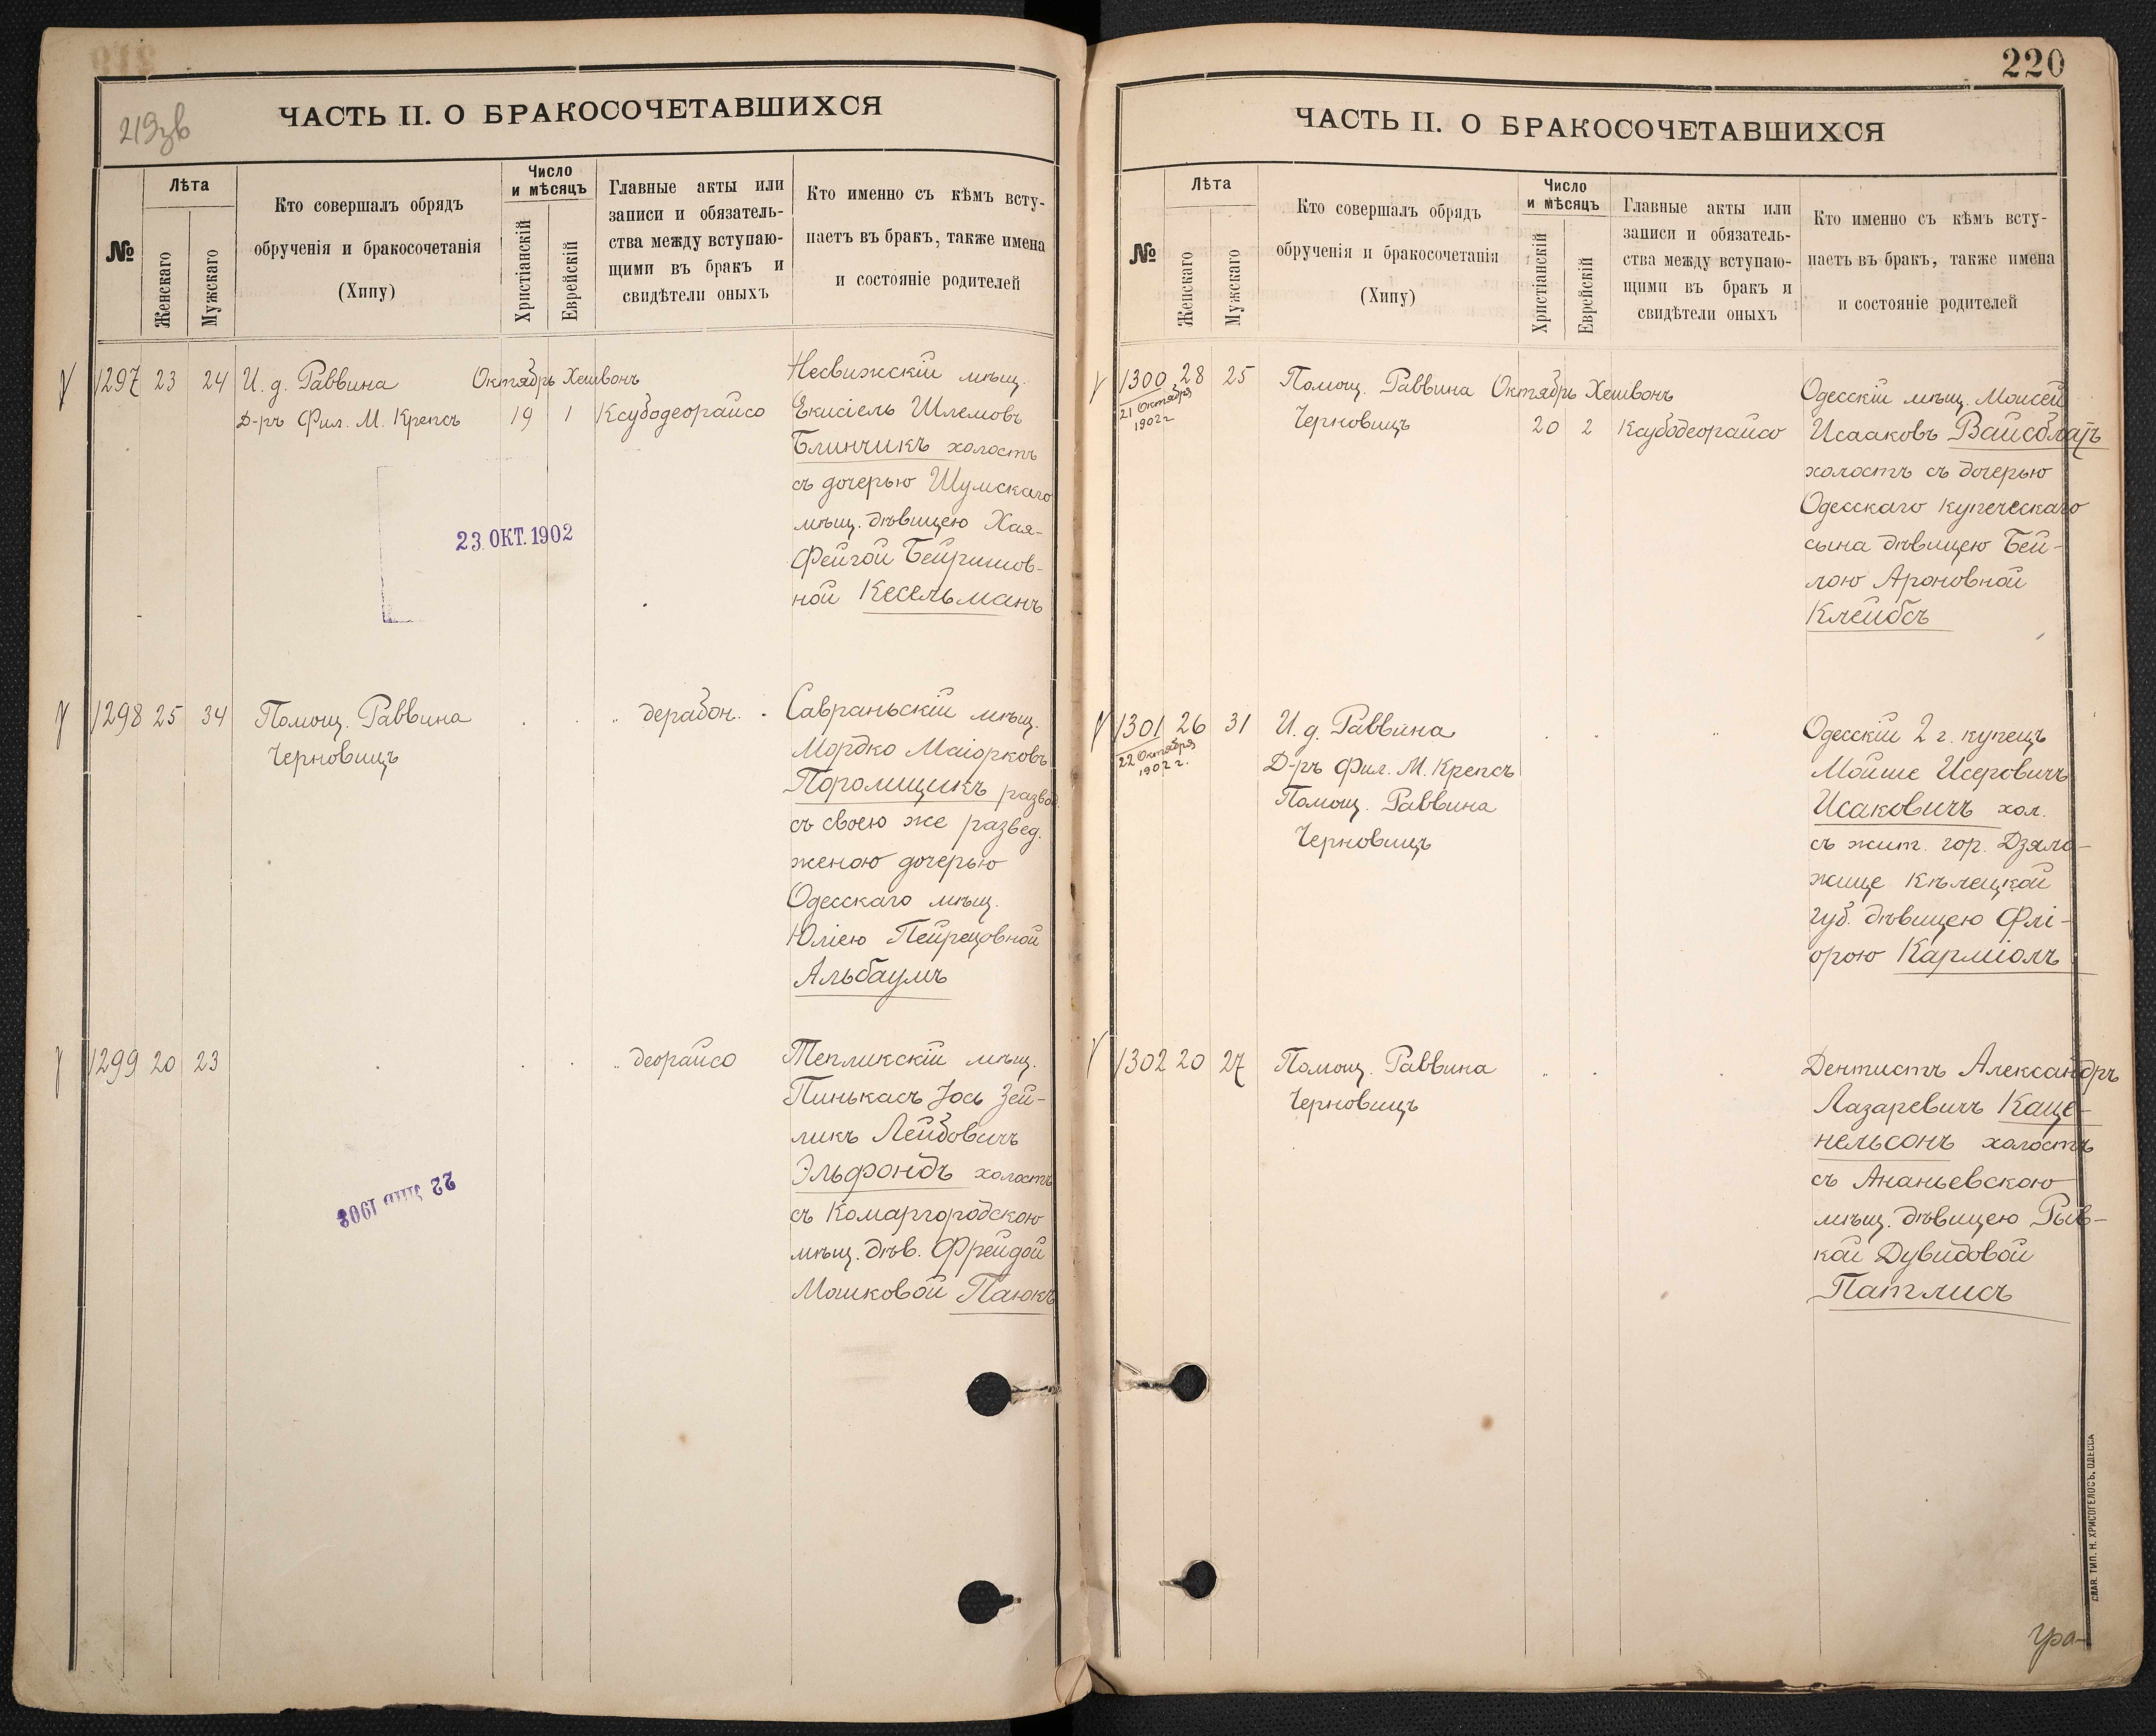 219зв
ЧАСТЬ II. О БРАКОСОЧЕТАВШИХСЯ
№
Лѣта
Женскаго
Мужскаго
Кто совершалъ обрядъ
обрученія и бракосочетанія
(Хипу)
Число
и мѣсяцъ
Христіанскій
Еврейскій
Главные акты или
записи и обязатель-
ства между вступаю-
щими въ бракъ и
свидѣтели оныхъ
Кто именно съ кѣмъ всту-
паетъ въ бракъ, также имена
и состояніе родителей
1297 23 24 И. д. Раввина Октябрь Хешвонъ
Д-ръ Фил. М. Крепсъ 19 1 Ксубодеорайсо
Несвижскій мѣщ.
Екисіель Шлемовъ
Блинчикъ холостъ
съ дочерью Шумскаго
мѣщ. дѣвицею Хая-
Фейгой Бейришов-
ной Кесельманъ
23. ОКТ. 1902
1298 25 34 Помощ. Раввина
Черновицъ
" дерабон.
Савраньскій мѣщ.
Мордко Маіорковъ
Поромщикъ развод.
съ своею же развед.
женою дочерью
Одесскаго мѣщ.
Юліею Пейрецовной
Альбаумъ
1299 20 23
" деорайсо
Тепликскій мѣщ.
Пинькасъ Іось Зей-
ликъ Лейбовичъ
Эльфондъ холостъ
съ Комаргородскою
мѣщ. дѣв. Фрейдой
Мошковой Паюкъ
220
ЧАСТЬ II. О БРАКОСОЧЕТАВШИХСЯ
№
Лѣта
Женскаго
Мужскаго
Кто совершалъ обрядъ
обрученія и бракосочетанія
(Хипу)
Число
и мѣсяцъ
Христіанскій
Еврейскій
Главные акты или
записи и обязатель-
ства между вступаю-
щими въ бракъ и
свидѣтели оныхъ
Кто именно съ кѣмъ всту-
паетъ въ бракъ, также имена
и состояніе родителей
1300 28 25 Помощ. Раввина Октябрь Хешвонъ
21 Октября
1902 г
Черновицъ 20 2 Ксубодеорайсо
Одесскій мѣщ. Моисей
Исааковъ Вайсблатъ
холостъ съ дочерью
Одесскаго купеческаго
сына дѣвицею Бей-
лою Ароновной
Клейбсъ
1301 26 31 И. д. Раввина
22 Октября
1902 г.
Д-ръ Фил. М. Крепсъ
Помощ. Раввина
Черновицъ
Одесскій 2 г. купецъ
Мойше Исеровичъ
Исаковичъ хол.
съ жит. гор. Дзяло-
жице Кѣлецкой
губ. дѣвицею Флі-
орою Карміолъ
1302 20 27 Помощ. Раввина
Черновицъ
Дентистъ Александръ
Лазаревичъ Каце-
нельсонъ холостъ
съ Ананьевскою
мѣщ. дѣвицею Рыв-
кой Дувидовой
Патлисъ
СЛАВ. ТИП. Н. ХРИСОГЕЛОСЪ, ОДЕССА